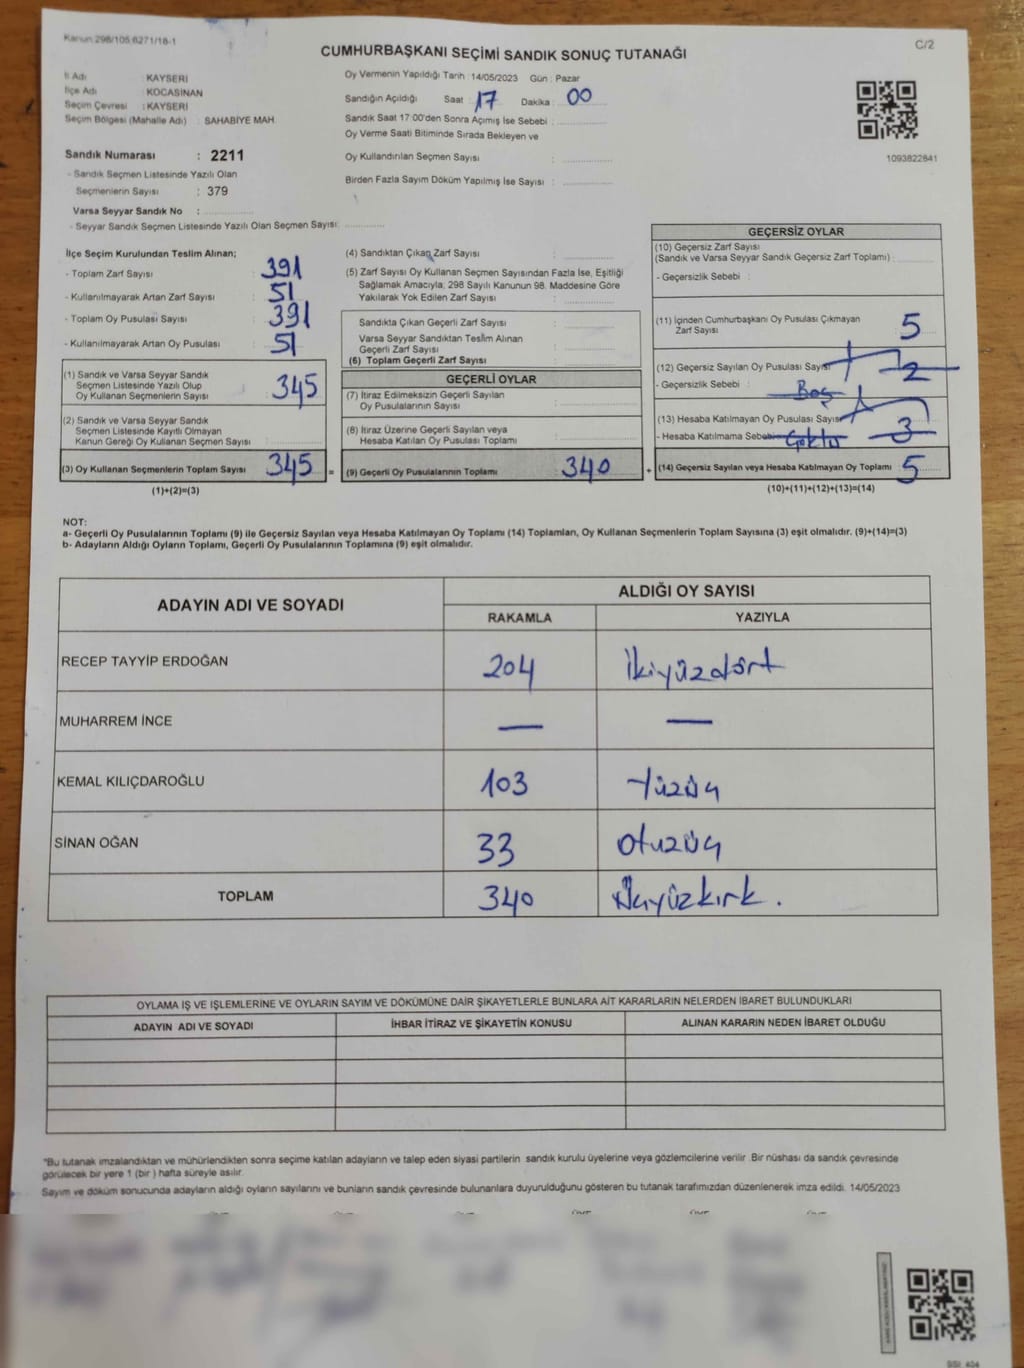 Kanun 298/105 6271/18-1
C/2
CUMHURBAŞKANI SEÇİMİ SANDIK SONUÇ TUTANAĞI
İl Adı : KAYSERİ
İlçe Adı : KOCASİNAN
Seçim Çevresi : KAYSERİ
Seçim Bölgesi (Mahalle Adı) : SAHABİYE MAH.
Sandık Numarası : 2211
- Sandık Seçmen Listesinde Yazılı Olan
Seçmenlerin Sayısı : 379
Varsa Seyyar Sandık No :
- Seyyar Sandık Seçmen Listesinde Yazılı Olan Seçmen Sayısı:
Oy Vermenin Yapıldığı Tarih : 14/05/2023 Gün : Pazar
Sandığın Açıldığı Saat : 17 Dakika : 00
Sandık Saat 17:00'den Sonra Açılmış İse Sebebi :
Oy Verme Saati Bitiminde Sırada Bekleyen ve
Oy Kullandırılan Seçmen Sayısı :
Birden Fazla Sayım Döküm Yapılmış İse Sayısı :
1093822841
İlçe Seçim Kurulundan Teslim Alınan;
- Toplam Zarf Sayısı : 391
- Kullanılmayarak Artan Zarf Sayısı : 51
- Toplam Oy Pusulası Sayısı : 391
- Kullanılmayarak Artan Oy Pusulası : 51
(1) Sandık ve Varsa Seyyar Sandık
Seçmen Listesinde Yazılı Olup
Oy Kullanan Seçmenlerin Sayısı : 345
(2) Sandık ve Varsa Seyyar Sandık
Seçmen Listesinde Kayıtlı Olmayan
Kanun Gereği Oy Kullanan Seçmen Sayısı :
(3) Oy Kullanan Seçmenlerin Toplam Sayısı : 345 =
(1)+(2)=(3)
(4) Sandıktan Çıkan Zarf Sayısı :
(5) Zarf Sayısı Oy Kullanan Seçmen Sayısından Fazla İse, Eşitliği
Sağlamak Amacıyla; 298 Sayılı Kanunun 98. Maddesine Göre
Yakılarak Yok Edilen Zarf Sayısı :
Sandıkta Çıkan Geçerli Zarf Sayısı :
Varsa Seyyar Sandıktan Teslim Alınan
Geçerli Zarf Sayısı :
(6) Toplam Geçerli Zarf Sayısı :
GEÇERLİ OYLAR
(7) İtiraz Edilmeksizin Geçerli Sayılan
Oy Pusulalarının Sayısı :
(8) İtiraz Üzerine Geçerli Sayılan veya
Hesaba Katılan Oy Pusulası Toplamı :
(9) Geçerli Oy Pusulalarının Toplamı : 340 +
GEÇERSİZ OYLAR
(10) Geçersiz Zarf Sayısı
(Sandık ve Varsa Seyyar Sandık Geçersiz Zarf Toplamı) :
- Geçersizlik Sebebi :
(11) İçinden Cumhurbaşkanı Oy Pusulası Çıkmayan
Zarf Sayısı : 5
(12) Geçersiz Sayılan Oy Pusulası Sayısı 2
- Geçersizlik Sebebi : Boş
(13) Hesaba Katılmayan Oy Pusulası Sayısı
- Hesaba Katılmama Sebebi : 3
(14) Geçersiz Sayılan veya Hesaba Katılmayan Oy Toplamı 5
(10)+(11)+(12)+(13)=(14)
NOT:
a- Geçerli Oy Pusulalarının Toplamı (9) ile Geçersiz Sayılan veya Hesaba Katılmayan Oy Toplamı (14) Toplamları, Oy Kullanan Seçmenlerin Toplam Sayısına (3) eşit olmalıdır. (9)+(14)=(3)
b- Adayların Aldığı Oyların Toplamı, Geçerli Oy Pusulalarının Toplamına (9) eşit olmalıdır.
ADAYIN ADI VE SOYADI ALDIĞI OY SAYISI
RAKAMLA YAZIYLA
RECEP TAYYİP ERDOĞAN 204 İkiyüzdört
MUHARREM İNCE — —
KEMAL KILIÇDAROĞLU 103 Yüzüç
SİNAN OĞAN 33 Otuzüç
TOPLAM 340 Üçyüzkırk.
OYLAMA İŞ VE İŞLEMLERİNE VE OYLARIN SAYIM VE DÖKÜMÜNE DAİR ŞİKAYETLERLE BUNLARA AİT KARARLARIN NELERDEN İBARET BULUNDUKLARI
ADAYIN ADI VE SOYADI İHBAR İTİRAZ VE ŞİKAYETİN KONUSU ALINAN KARARIN NEDEN İBARET OLDUĞU
*Bu tutanak imzalandıktan ve mühürlendikten sonra seçime katılan adayların ve talep eden siyasi partilerin sandık kurulu üyelerine veya gözlemcilerine verilir. Bir nüshası da sandık çevresinde
görülecek bir yere 1 (bir ) hafta süreyle asılır.
Sayım ve döküm sonucunda adayların aldığı oyların sayılarını ve bunların sandık çevresinde bulunanlara duyurulduğunu gösteren bu tutanak tarafımızdan düzenlenerek imza edildi. 14/05/2023